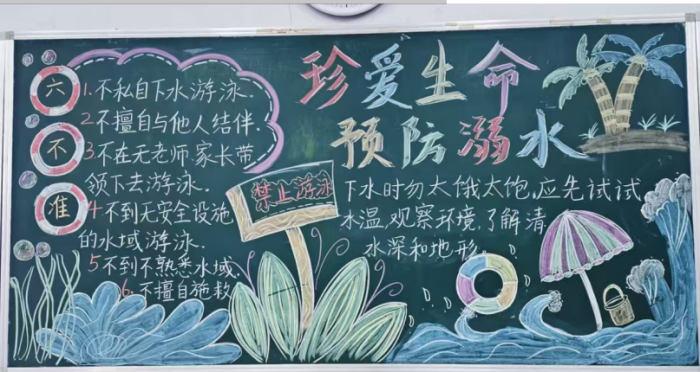 珍爱生命
预防溺水
六
不
准
1.不私自下水游泳.
2.不擅自与他人结伴.
3.不在无老师.家长带
领下去游泳.
4不到无安全设施
的水域游泳.
5不到不熟悉水域.
6.不擅自施救
禁止游泳
下水时勿太饿太饱,应先试试
水温,观察环境,了解清
水深和地形.